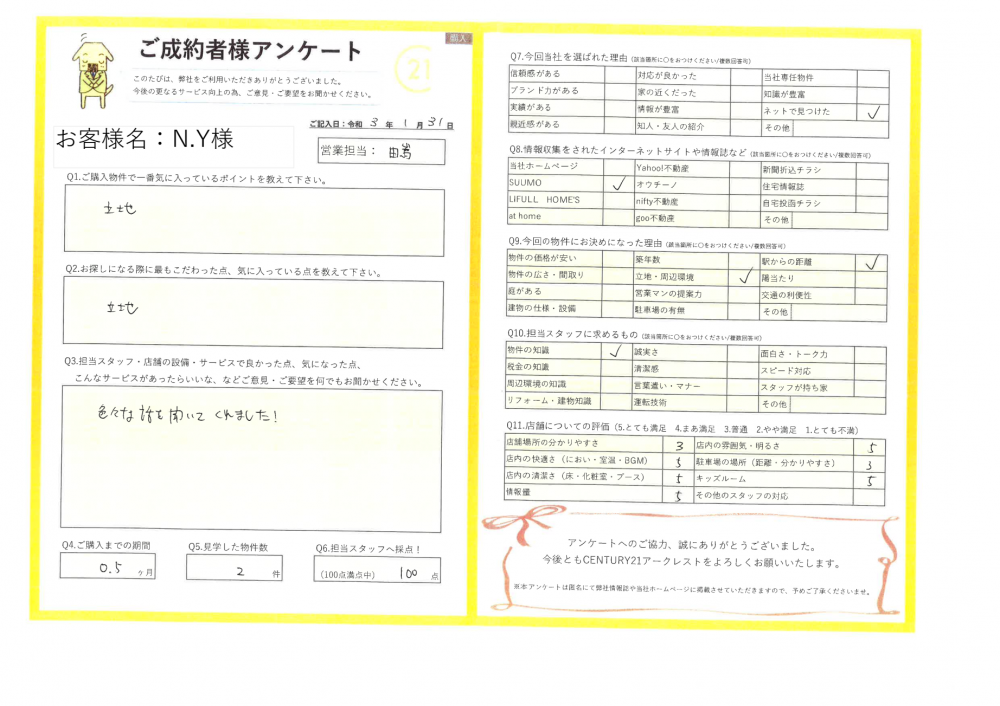 ご成約者様アンケート
購入
21
このたびは、弊社をご利用いただきありがとうございました。
今後の更なるサービス向上の為、ご意見・ご要望をお聞かせください。
ご記入日：令和 3 年 1 月 31 日
お客様名：N.Y様
営業担当：
Q1.ご購入物件で一番気に入っているポイントを教えて下さい。
立地
Q2.お探しになる際に最もこだわった点、気に入っている点を教えて下さい。
立地
Q3.担当スタッフ・店舗の設備・サービスで良かった点、気になった点、
こんなサービスがあったらいいな、などご意見・ご要望を何でもお聞かせください。
色々な話も聞いてくれました!
Q4.ご購入までの期間
0.5 ヶ月
Q5.見学した物件数
2 件
Q6.担当スタッフへ採点！
（100点満点中） 100 点
Q7.今回当社を選ばれた理由（該当箇所に〇をおつけください/複数回答可）
信頼感がある 対応が良かった 当社専任物件
ブランド力がある 家の近くだった 知識が豊富
実績がある 情報が豊富 ネットで見つけた ✓
親近感がある 知人・友人の紹介 その他
Q8.情報収集をされたインターネットサイトや情報誌など（該当箇所に〇をおつけください/複数回答可）
当社ホームページ Yahoo!不動産 新聞折込チラシ
SUUMO ✓ オウチーノ 住宅情報誌
LiFULL HOME'S nifty不動産 自宅投函チラシ
at home goo不動産 その他
Q9.今回の物件にお決めになった理由（該当箇所に〇をおつけください/複数回答可）
物件の価格が安い 築年数 駅からの距離 ✓
物件の広さ・間取り 立地・周辺環境 ✓ 陽当たり
庭がある 営業マンの提案力 交通の利便性
建物の仕様・設備 駐車場の有無 その他
Q10.担当スタッフに求めるもの（該当箇所に〇をおつけください/複数回答可）
物件の知識 ✓ 誠実さ 面白さ・トーク力
税金の知識 清潔感 スピード対応
周辺環境の知識 言葉遣い・マナー スタッフが持ち家
リフォーム・建物知識 運転技術 その他
Q11.店舗についての評価（5.とても満足 4.まあ満足 3.普通 2.やや満足 1.とても不満）
店舗場所の分かりやすさ 3 店内の雰囲気・明るさ 5
店内の快適さ（におい・室温・BGM） 5 駐車場の場所（距離・分かりやすさ） 3
店内の清潔さ（床・化粧室・ブース） 5 キッズルーム 5
情報量 5 その他のスタッフの対応
アンケートへのご協力、誠にありがとうございました。
今後ともCENTURY21アークレストをよろしくお願いいたします。
※本アンケートは匿名にて弊社情報誌や当社ホームページに掲載させていただきますので、予めご了承くださいませ。